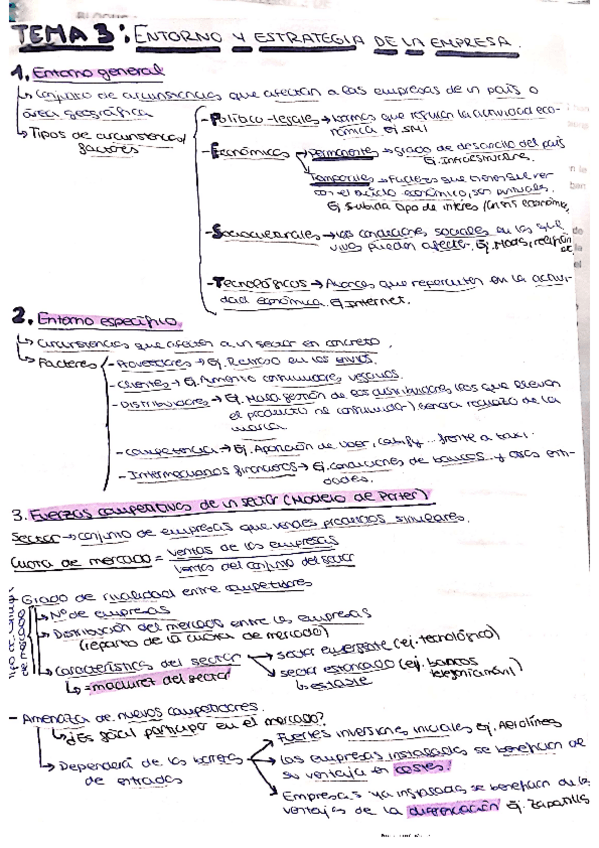 TEMA 3: ENTORNO Y ESTRATEGIA DE LA EMPRESA.
1. Entorno general
↳ Conjunto de circunstancias que afectan a las empresas de un país o
área geográfica
↳ Tipos de circunstancias/
factores
- Político-legales → Normas que regulan la actividad eco-
nómica Ej. SMI
- Económicos → Permanentes → Grado de desarrollo del país
Ej. Infraestructuras.
Temporales → Factores que tienen que ver
con el ciclo económico, son puntuales.
Ej. Subida tipo de interés / Crisis económica,
- Socioculturales → Las condiciones sociales en los que
vives pueden afectar. Ej. Moda, religión
- Tecnológicos → Avances que repercuten en la activi-
dad económica. Ej. Internet.
2. Entorno específico.
↳ Circunstancias que afectan a un sector en concreto.
↳ Factores
- Proveedores → Ej. Retraso en los envíos.
- Clientes → Ej. Aumento consumidores veganos.
- Distribuidores → Ej. Mala gestión de los distribuidores (los que llevan
el producto al consumidor) genera rechazo de la
marca
- Competencia → Ej. Aparición de Uber, Cabify... frente a taxi.
- Intermediarios financieros → Ej. Condiciones de bancos y otras enti-
dades.
3. Fuerzas competitivas de un sector (Modelo de Porter)
Sector → conjunto de empresas que venden productos similares.
Cuota de mercado = ventas de las empresas
ventas del conjunto del sector
- Grado de rivalidad entre competidores
↳ Nº de empresas
↳ Distribución del mercado entre las empresas
(reparto de la cuota de mercado)
↳ Características del sector → sector emergente (ej. tecnológico)
↳ = madurez del sector
→ sector estancado (ej. bancos
telefonía móvil)
↳ estable
- Amenaza de nuevos competidores.
↳ ¿Es fácil participar en el mercado?
↳ Dependerá de las barreras
de entradas
Fuertes inversiones iniciales Ej. Aerolínea
Las empresas instaladas se benefician de
su ventaja en costes.
Empresas ya instaladas se benefician de las
ventajas de la diferenciación Ej. Zapatillas